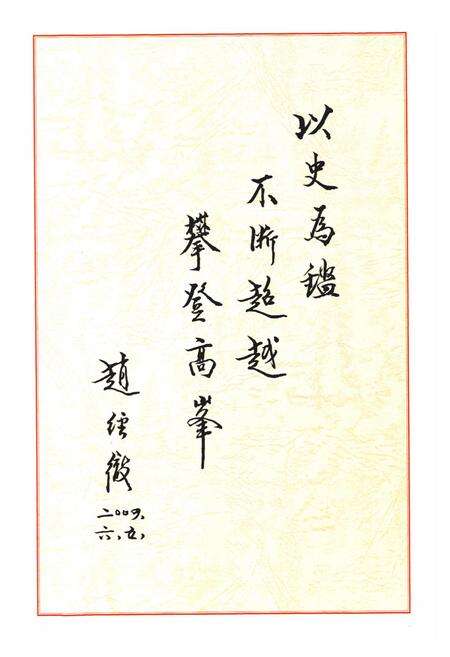 以史為鑑
不断超越
攀登高峯
趙經徹
二〇〇九.
六.五.